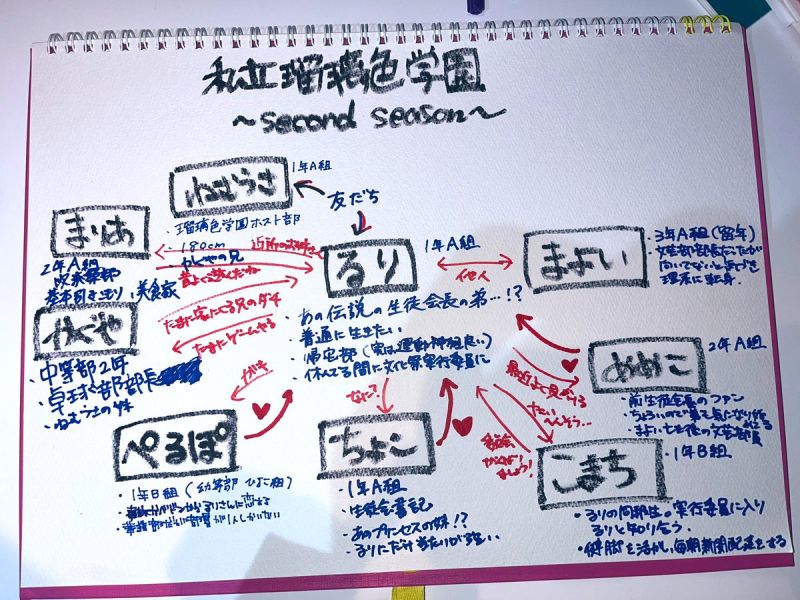 私立瑠璃色学園
～second season～
ねむうさ
1年A組
・瑠璃色学園ホスト部
・180cm
・かぐやの兄
友だち
まりあ
2年A組
帰宅部
基本引きこもり、美食家
近所のお姉さん
昔よく遊んだね
るり
1年A組
・あの伝説の生徒会長の弟…!?
・普通に生きたい
・帰宅部（実は運動神経良い）
・休んでる間に文化祭実行委員に
他人
まよい
3年A組（留年）
・文芸部部長だったが
向いてないと
理系に転身。
かぐや
・中等部2年
・卓球部部長
・ねむうさの
たまに家にくる兄のダチ
たまにゲームやる
ぺるぽ
・1年B組（幼等部 ひよこ組）
ガキ
なに？
ちよこ
・1年A組
・生徒会書記
・あのプリンセスの妹!?
・るりにだけ当たりが強い。
めめこ
2年A組
・前生徒会長のファン
・ちょろいので弟も気になり
・まよい亡き後の文芸部員
最近よく見かける
たいへんそう…
こまち
・1年B組
・るりの同期生。実行委員に入り
るりと知り合う。
・健脚を活かし、毎朝新聞配達をする